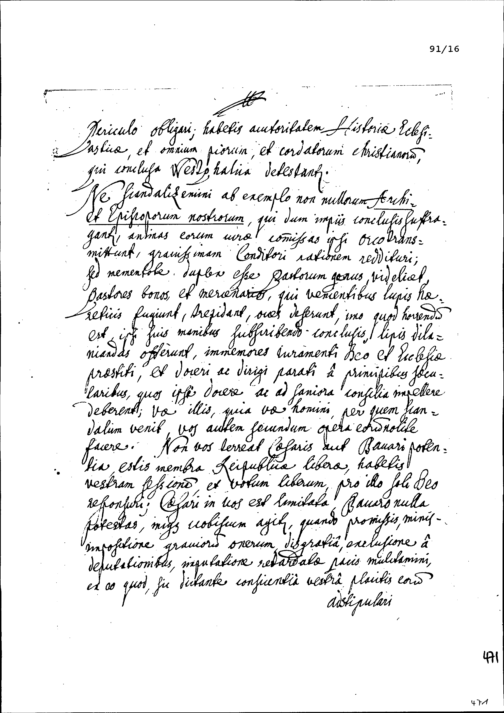 91/16
periculo obligari; habetis auctoritatem Historiæ Eclesi-
asticæ, et omnium piorum, et cordatorum christianorũ,
qui conclusa Westphalica detestantr.
Ne scandalizemini ab exemplo non nullorum Archi-
et Episcoporum nostrorum, qui dum impiis conclusis suffra-
gantr, animas eorum curæ comissas ipsi orco trans=
mittunt, gravissimam Conditori rationem reddituri;
sed mementote duplex esse Pastorum genus, videlicet
Pastores bonos et mercenarios, qui venientibus lupis hæ-
reticis fugiunt, trepidant, oves deserunt, imo quod horrendũ
est, ipsi suis manibus subscribendo conclusis, lupis dila=
niandas offerunt, immemores iuramenti Deo et Ecclesiæ
præstiti, et doceri ac dirigi parati à principibus sæcu-
laribus, quos ipsi docere ac ad saniora consilia impellere
deberent, væ illis, quia væ homini, per quem scan=
dalum venit, vos autem secundum opera eorũ nolite
facere. Non vos terreat Cæsaris aut Bavari poten=
tia, estis membra Reipublicæ libera, habetis
vestram sessionẽ et votum liberum, pro illo soli Deo
responsuri; Cæsari in vos est limitata, Bavaro nulla
potestas, nisi vobiscum agitr, quando promissis, minis-
impositione graviorũ onerum, disgratiâ, exclusione â
deputationibus, imputatione retardatæ pacis
ex eo quod, sic dictante conscientiâ vestrâ placitis eorũ
astipulari
471
471